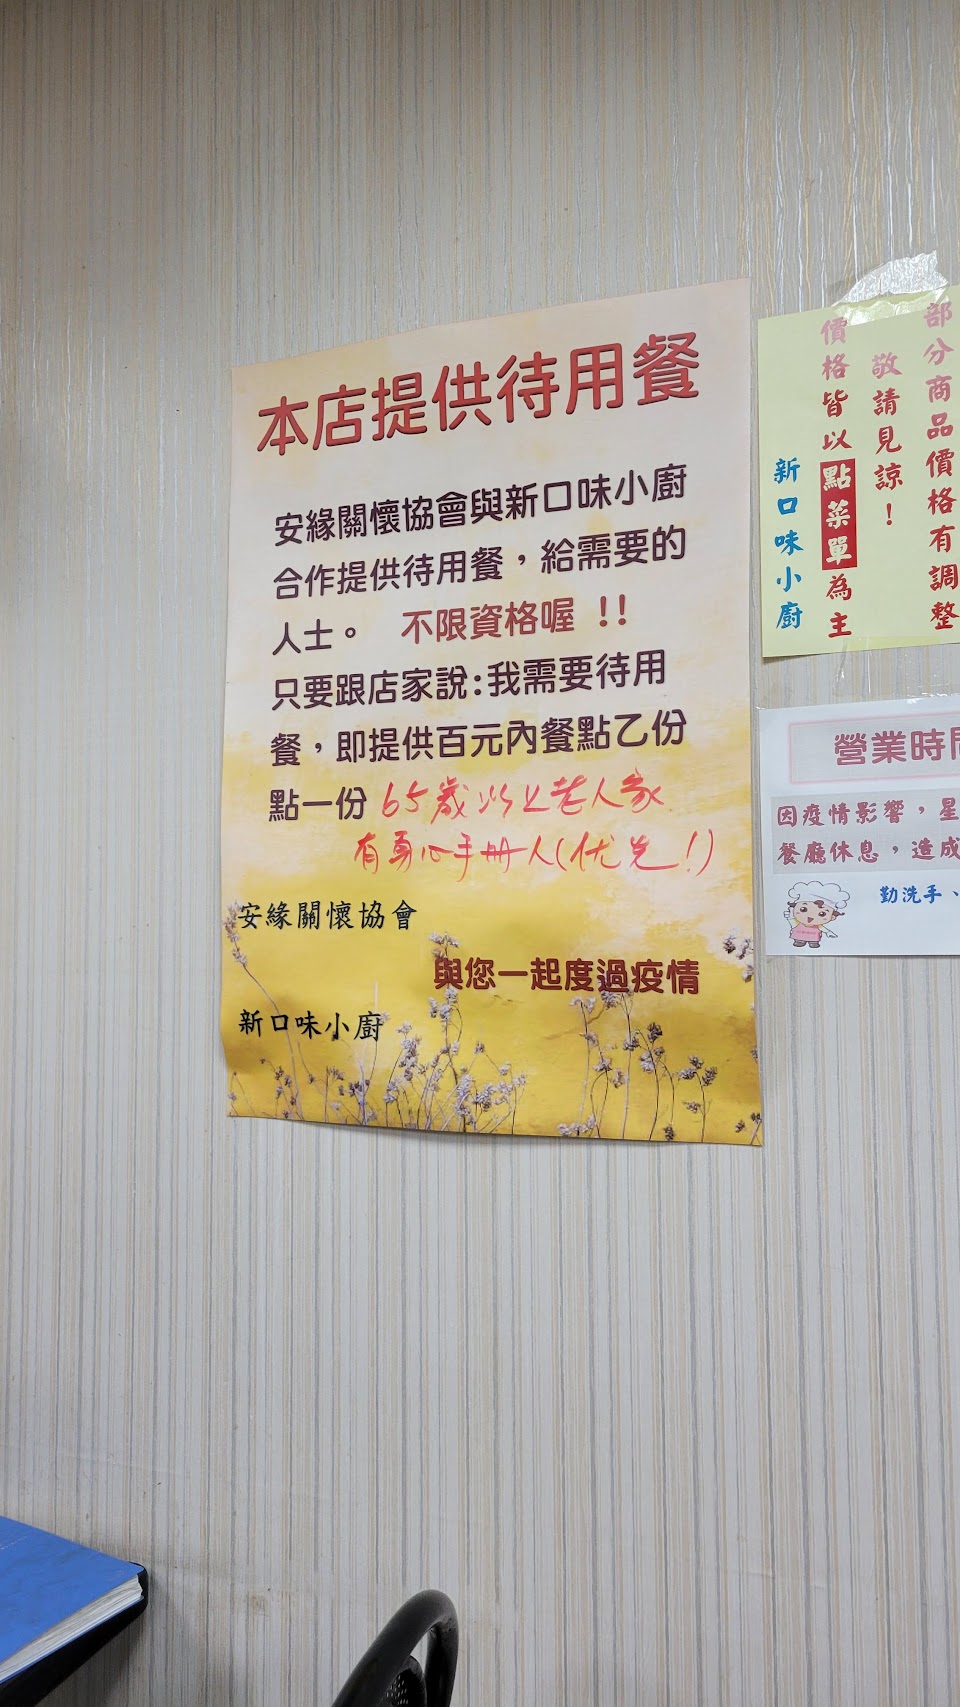 本店提供待用餐
安緣關懷協會與新口味小廚
合作提供待用餐，給需要的
人士。 不限資格喔 !!
只要跟店家說:我需要待用
餐，即提供百元內餐點乙份
點一份 65歲以上老人家
有身心手冊人(优先!)
安緣關懷協會
與您一起度過疫情
新口味小廚
部分商品價格有調整
敬請見諒！
價格皆以點菜單為主
新口味小廚
營業時間
因疫情影響，星
餐廳休息，造成
勤洗手、